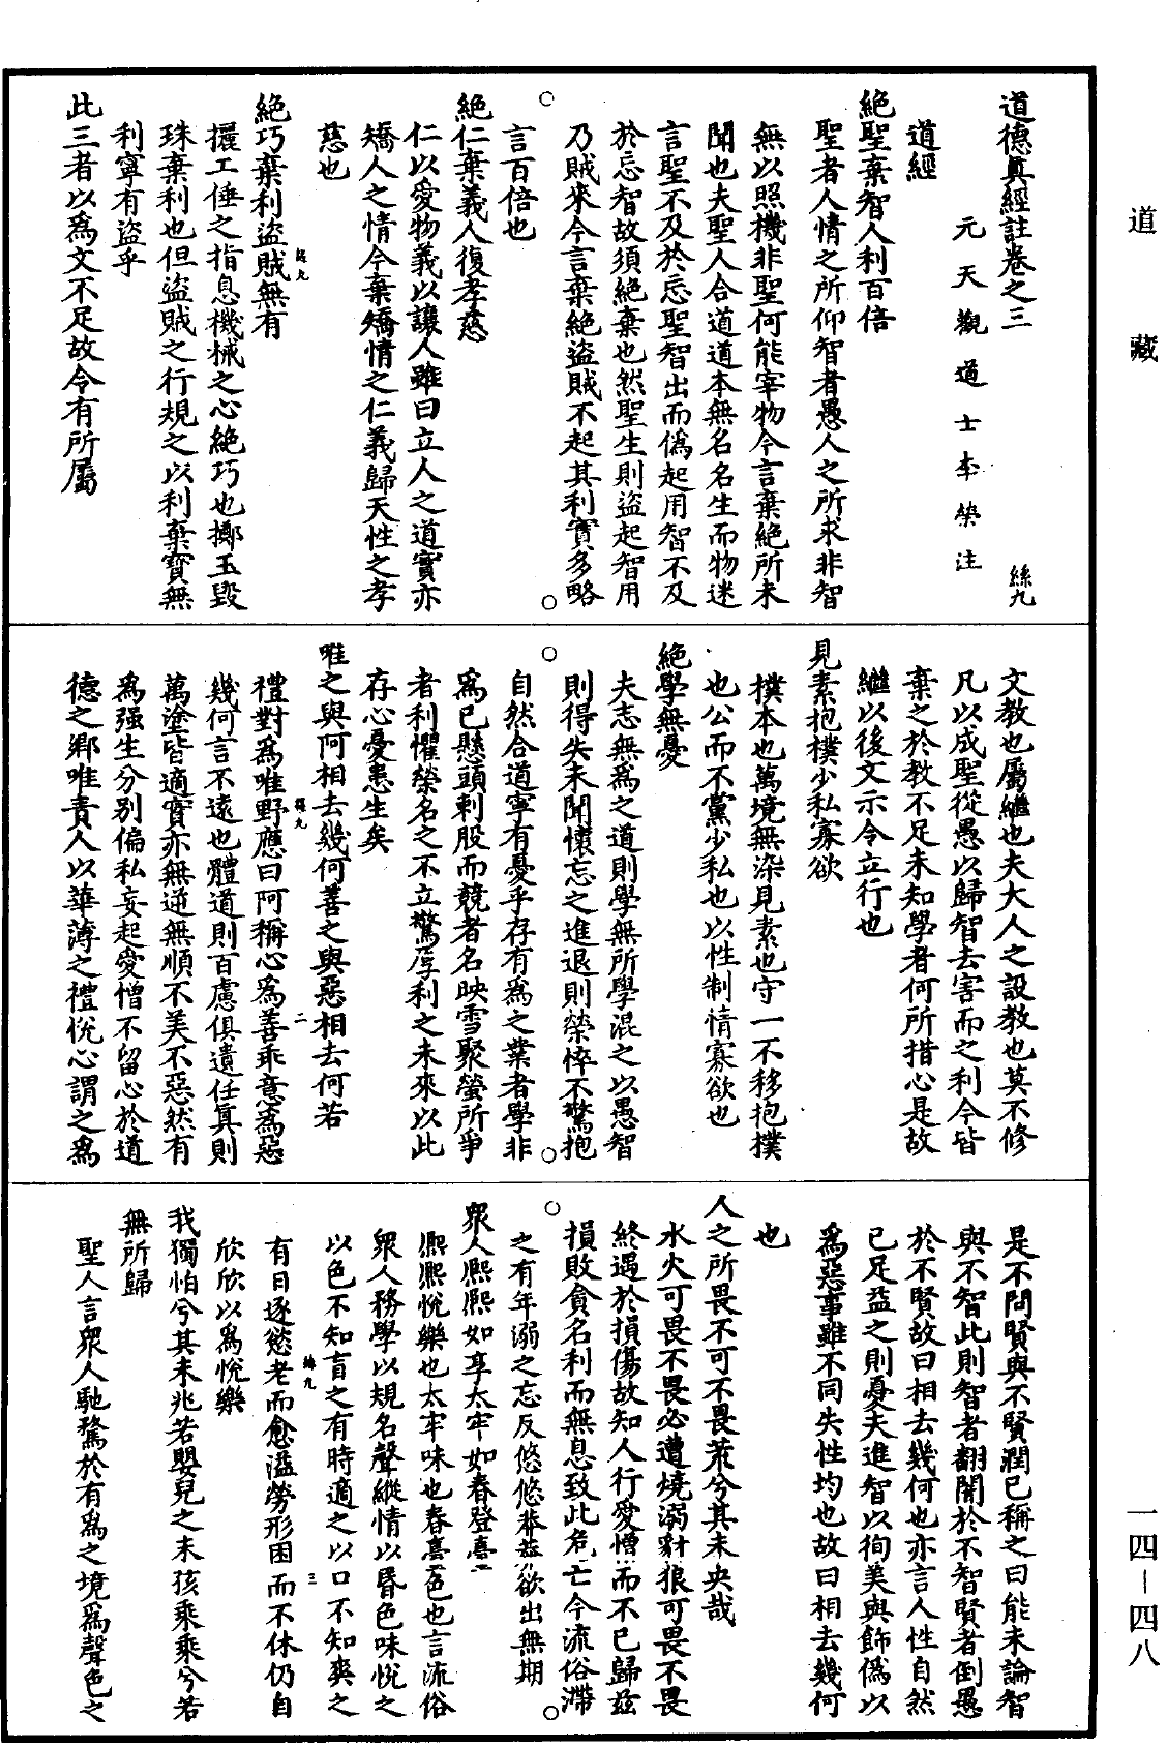 道藏
一四—四八
道德真經註卷之三
絲九
元天觀道士李榮注
道經
絕聖棄智人利百倍
聖者人情之所仰智者愚人之所求非智
無以照機非聖何能宰物今言棄絕所未
聞也夫聖人合道道本無名名生而物迷
言聖不及於忘聖智出而偽起用智不及
於忘智故須絕棄也然聖生則盜起智用
乃賊來今言棄絕盜賊不起其利實多略
言百倍也
絕仁棄義人復孝慈
仁以愛物義以讓人雖曰立人之道實亦
矯人之情今棄矯情之仁義歸天性之孝
慈也
絕巧棄利盜賊無有
絲九
攦工倕之指息機械之心絕巧也擲玉毀
珠棄利也但盜賊之行規之以利棄寶無
利寧有盜乎
此三者以為文不足故令有所屬
文教也屬繼也夫大人之設教也莫不修
凡以成聖從愚以歸智去害而之利今皆
棄之於教不足未知學者何所措心是故
繼以後文示令立行也
見素抱樸少私寡欲
樸本也萬境無染見素也守一不移抱樸
也公而不黨少私也以性制情寡欲也
絕學無憂
夫志無為之道則學無所學混之以愚智
則得失未聞懷忘之進退則榮悴不驚抱
自然合道寧有憂乎存有為之業者學非
為已懸頭刺股而競者名映雪聚螢所爭
者利懼榮名之不立驚厚利之未來以此
存心憂患生矣
唯之與阿相去幾何善之與惡相去何若
禮對為唯野應曰阿稱心為善乖意為惡
絲九
二
幾何言不遠也體道則百慮俱遺任真則
萬塗皆適實亦無逆無順不美不惡然有
為强生分別偏私妄起愛憎不留心於道
德之鄉唯責人以華薄之禮悅心謂之為
是不問賢與不賢潤已稱之曰能未論智
與不智此則智者翻闇於不智賢者倒愚
於不賢故曰相去幾何也亦言人性自然
已足益之則憂夫進智以徇美與飾偽以
為惡事雖不同失性均也故曰相去幾何
也
人之所畏不可不畏荒兮其未央哉
水火可畏不畏必遭燒溺豺狼可畏不畏
終遇於損傷故知人行愛憎而不已歸茲
損敗貪名利而無息致此危亡今流俗滯
之有年溺之忘反悠悠莽莽欲出無期
眾人熙熙如享太牢如春登臺
熙熙悅樂也太牢味也春臺色也言流俗
眾人務學以規名聲縱情以昬色味悅之
以色不知盲之有時適之以口不知爽之
有日逐慾老而愈溢勞形困而不休仍自
絲九
三
欣欣以為悅樂
我獨怕兮其未兆若嬰兒之未孩乘乘兮若
無所歸
聖人言眾人馳騖於有為之境為聲色之